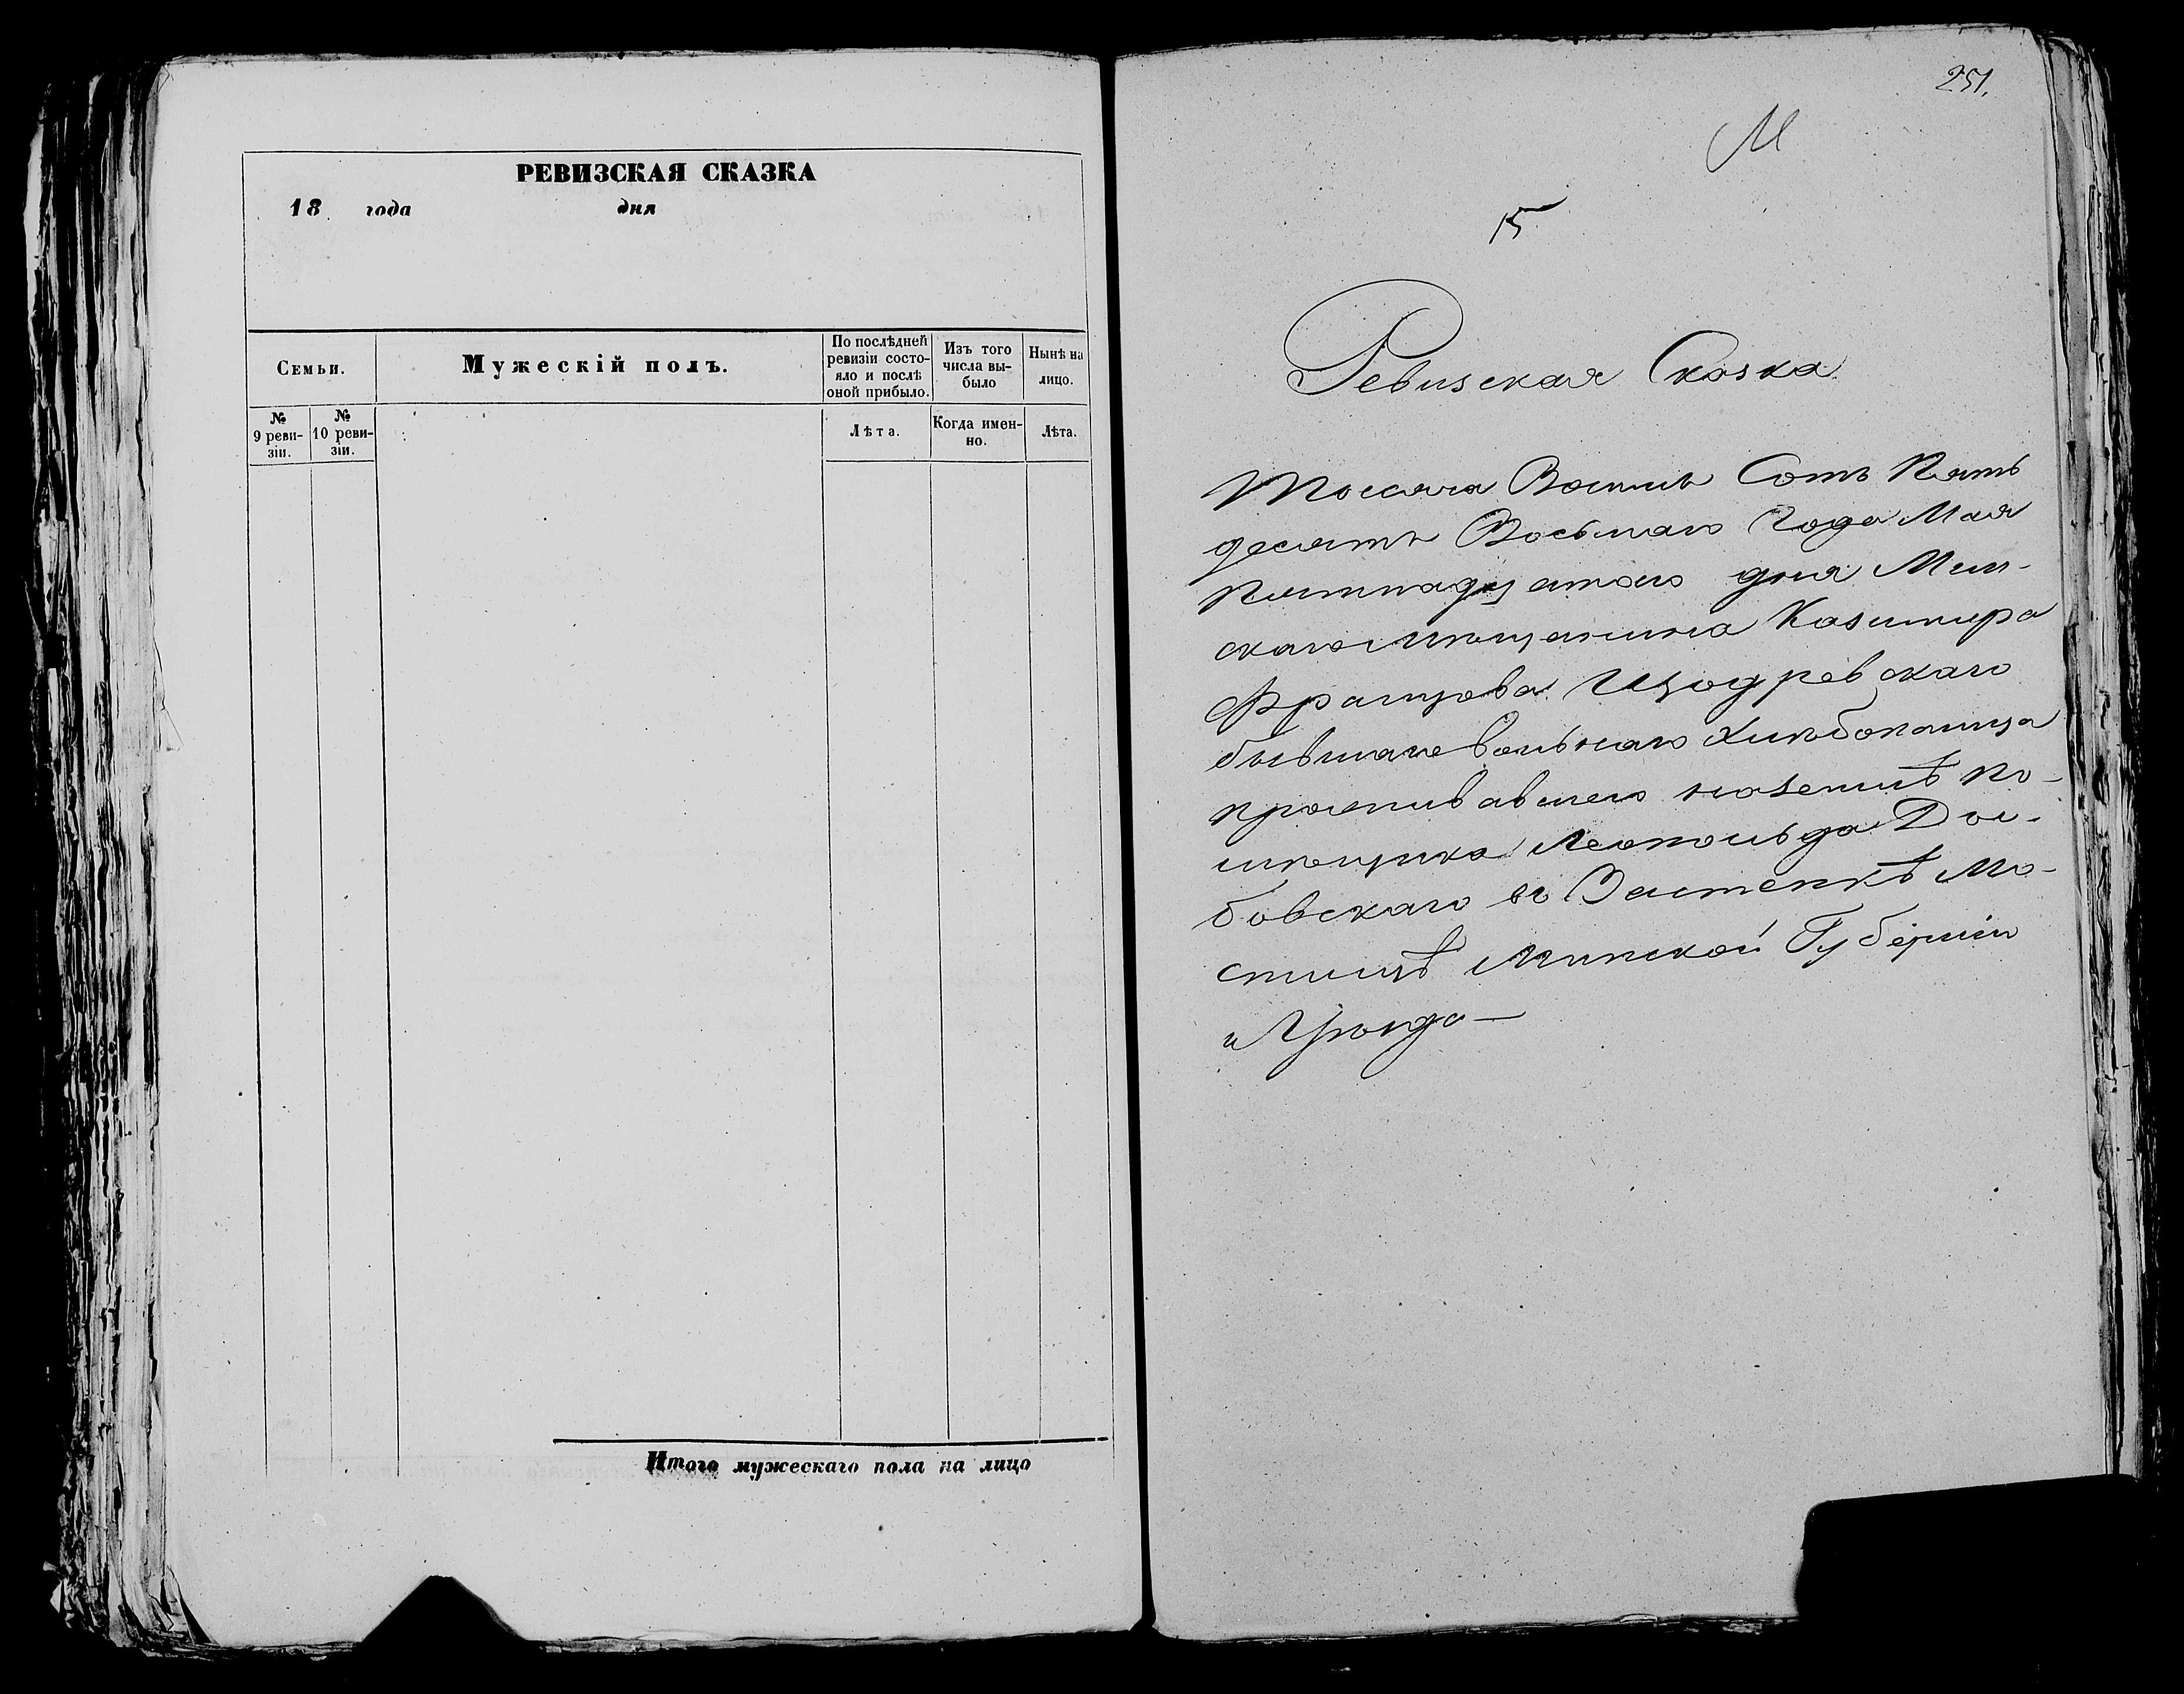 РЕВИЗСКАЯ СКАЗКА
18 года дня
Семьи.
Мужескій полъ.
По послѣдней
ревизіи состо-
яло и послѣ
оной прибыло.
Изъ того
числа вы-
было
Нынѣ на
лицо.
№
9 реви-
зіи.
№
10 реви-
зіи.
Лѣта.
Когда имен-
но.
Лѣта.
Итого мужескаго пола на лицо
251.
М
15
Ревизская Сказка
Тысяча Восемь Сотъ Пять
десятъ Восьмаго Года Мая
Пятнадцатого дня Мин-
скаго мѣщанина Казимира
Францова Щодревскаго
бывшаго вольнаго хлѣбопашца
проживавшего на землѣ по-
мѣщика Леопольда Дом-
бовскаго въ Застенкѣ Мо-
стищѣ Минской Губерніи
и Уѣзда —